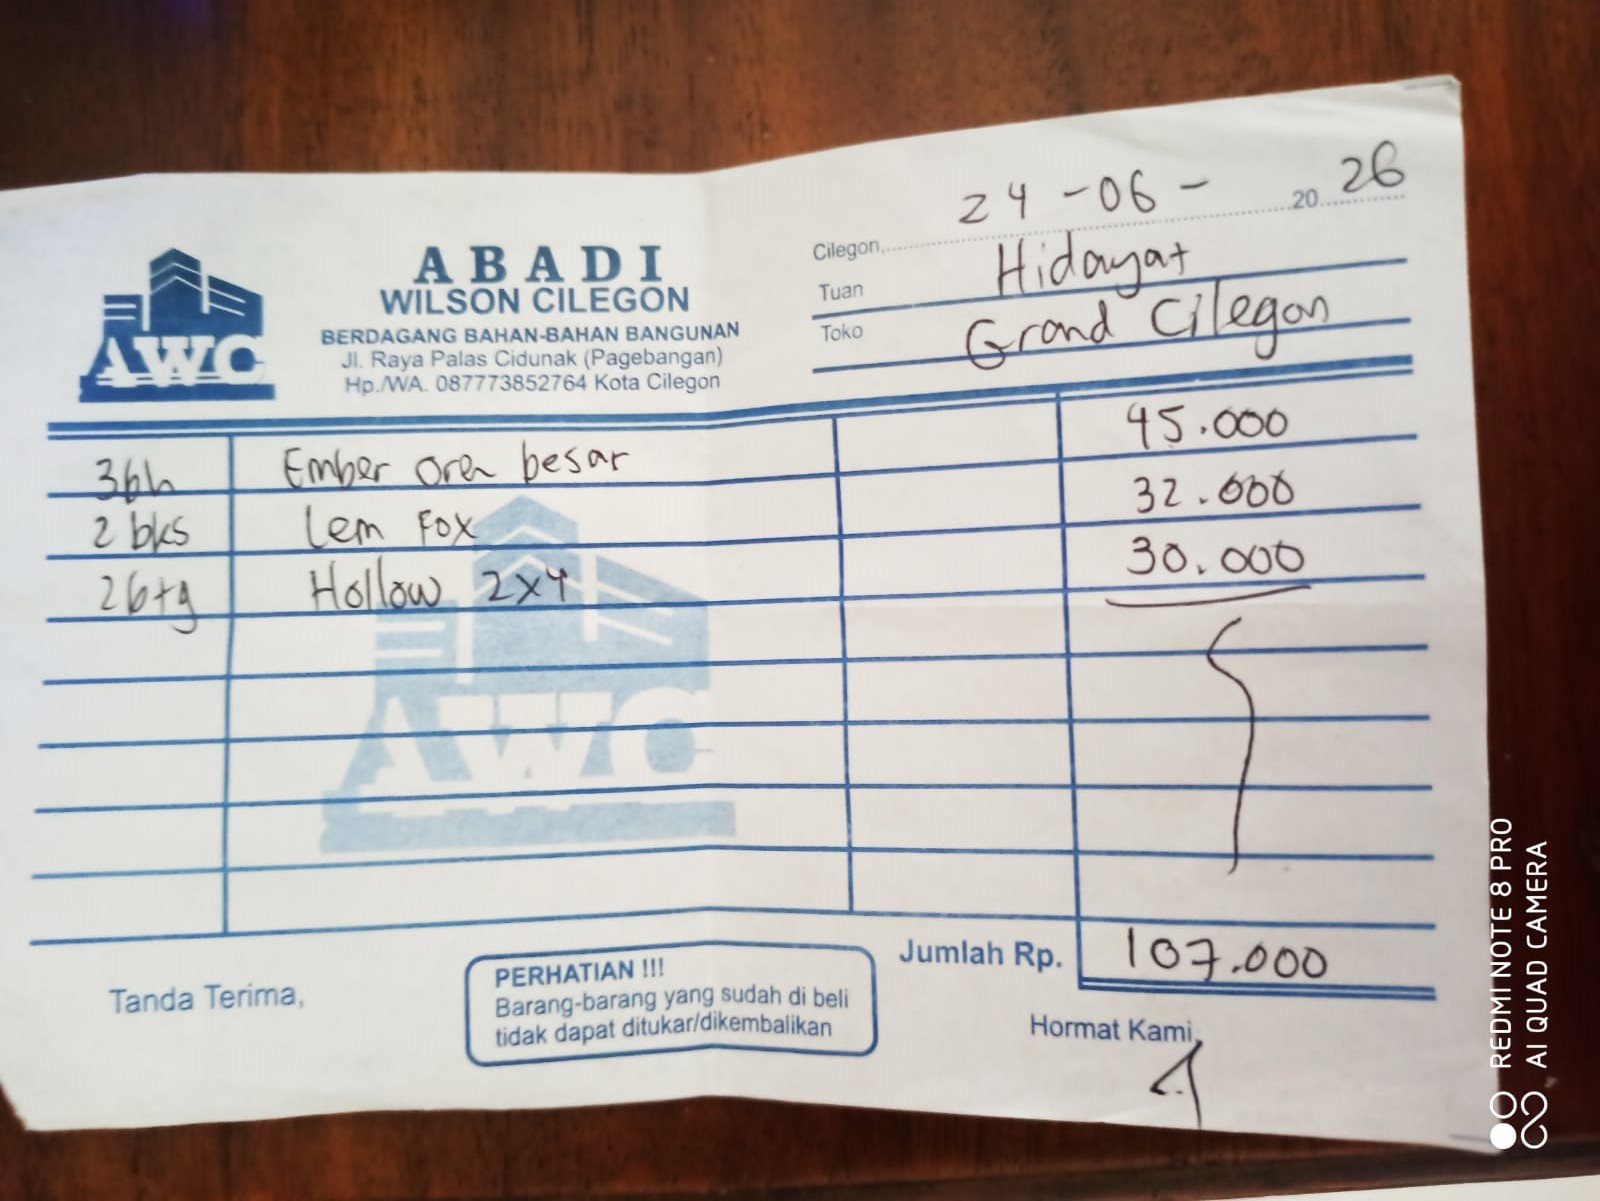 AWC
ABADI
WILSON CILEGON
BERDAGANG BAHAN-BAHAN BANGUNAN
Jl. Raya Palas Cidunak (Pagebangan)
Hp./WA. 087773852764 Kota Cilegon
Cilegon, 24-06- 20 26
Tuan Hidayat
Toko Grand Cilegon
3bh Ember oren besar 45.000
2 bks Lem Fox 32.000
2btg Hollow 2x4 30.000
AWC
Jumlah Rp. 107.000
Tanda Terima,
PERHATIAN !!!
Barang-barang yang sudah di beli
tidak dapat ditukar/dikembalikan
Hormat Kami,
REDMI NOTE 8 PRO
AI QUAD CAMERA